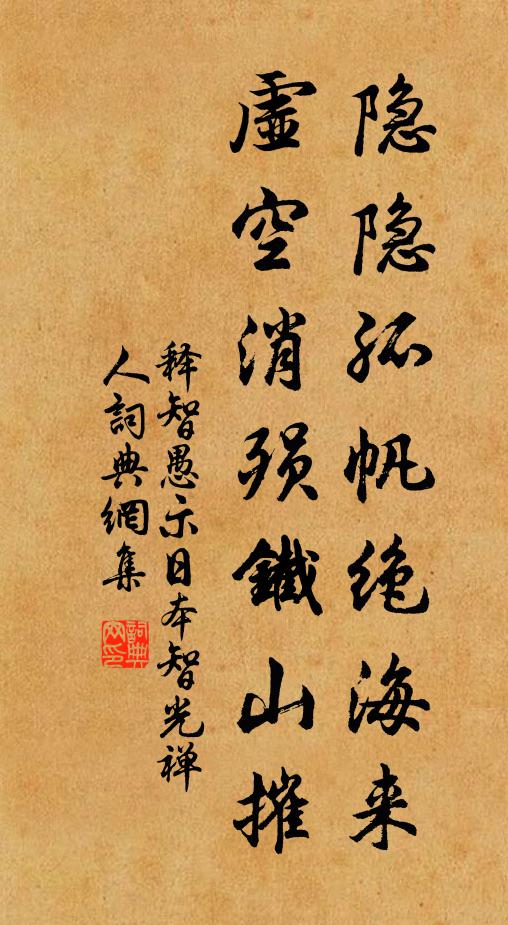 隐隐孤帆绝海来
虚空消殒鐵山摧
释智愚示日本智光禅
人詞典網集
詞典
网印